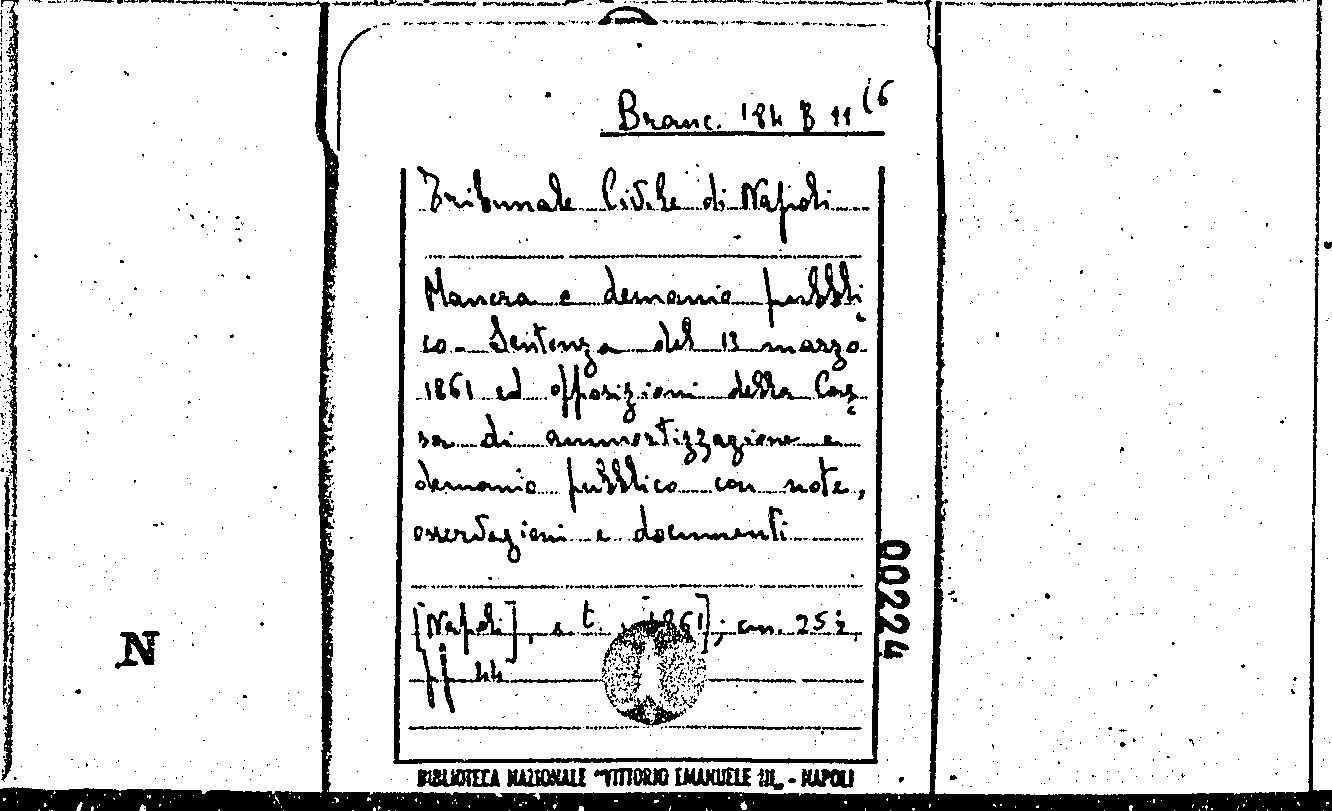 Branc. 184 B 11 (6
Tribunale Civile di Napoli
Mancra e demanio pubbli
co - Sentenza del 13 marzo
1861 ed opposizioni della Cas
sa di ammortizzazione e
demanio pubblico con note,
osservazioni e documenti
[Napoli], s. t. 1861]; cm. 25½,
pp 44
00224
N
BIBLIOTECA NAZIONALE "VITTORIO EMANUELE III„ - NAPOLI